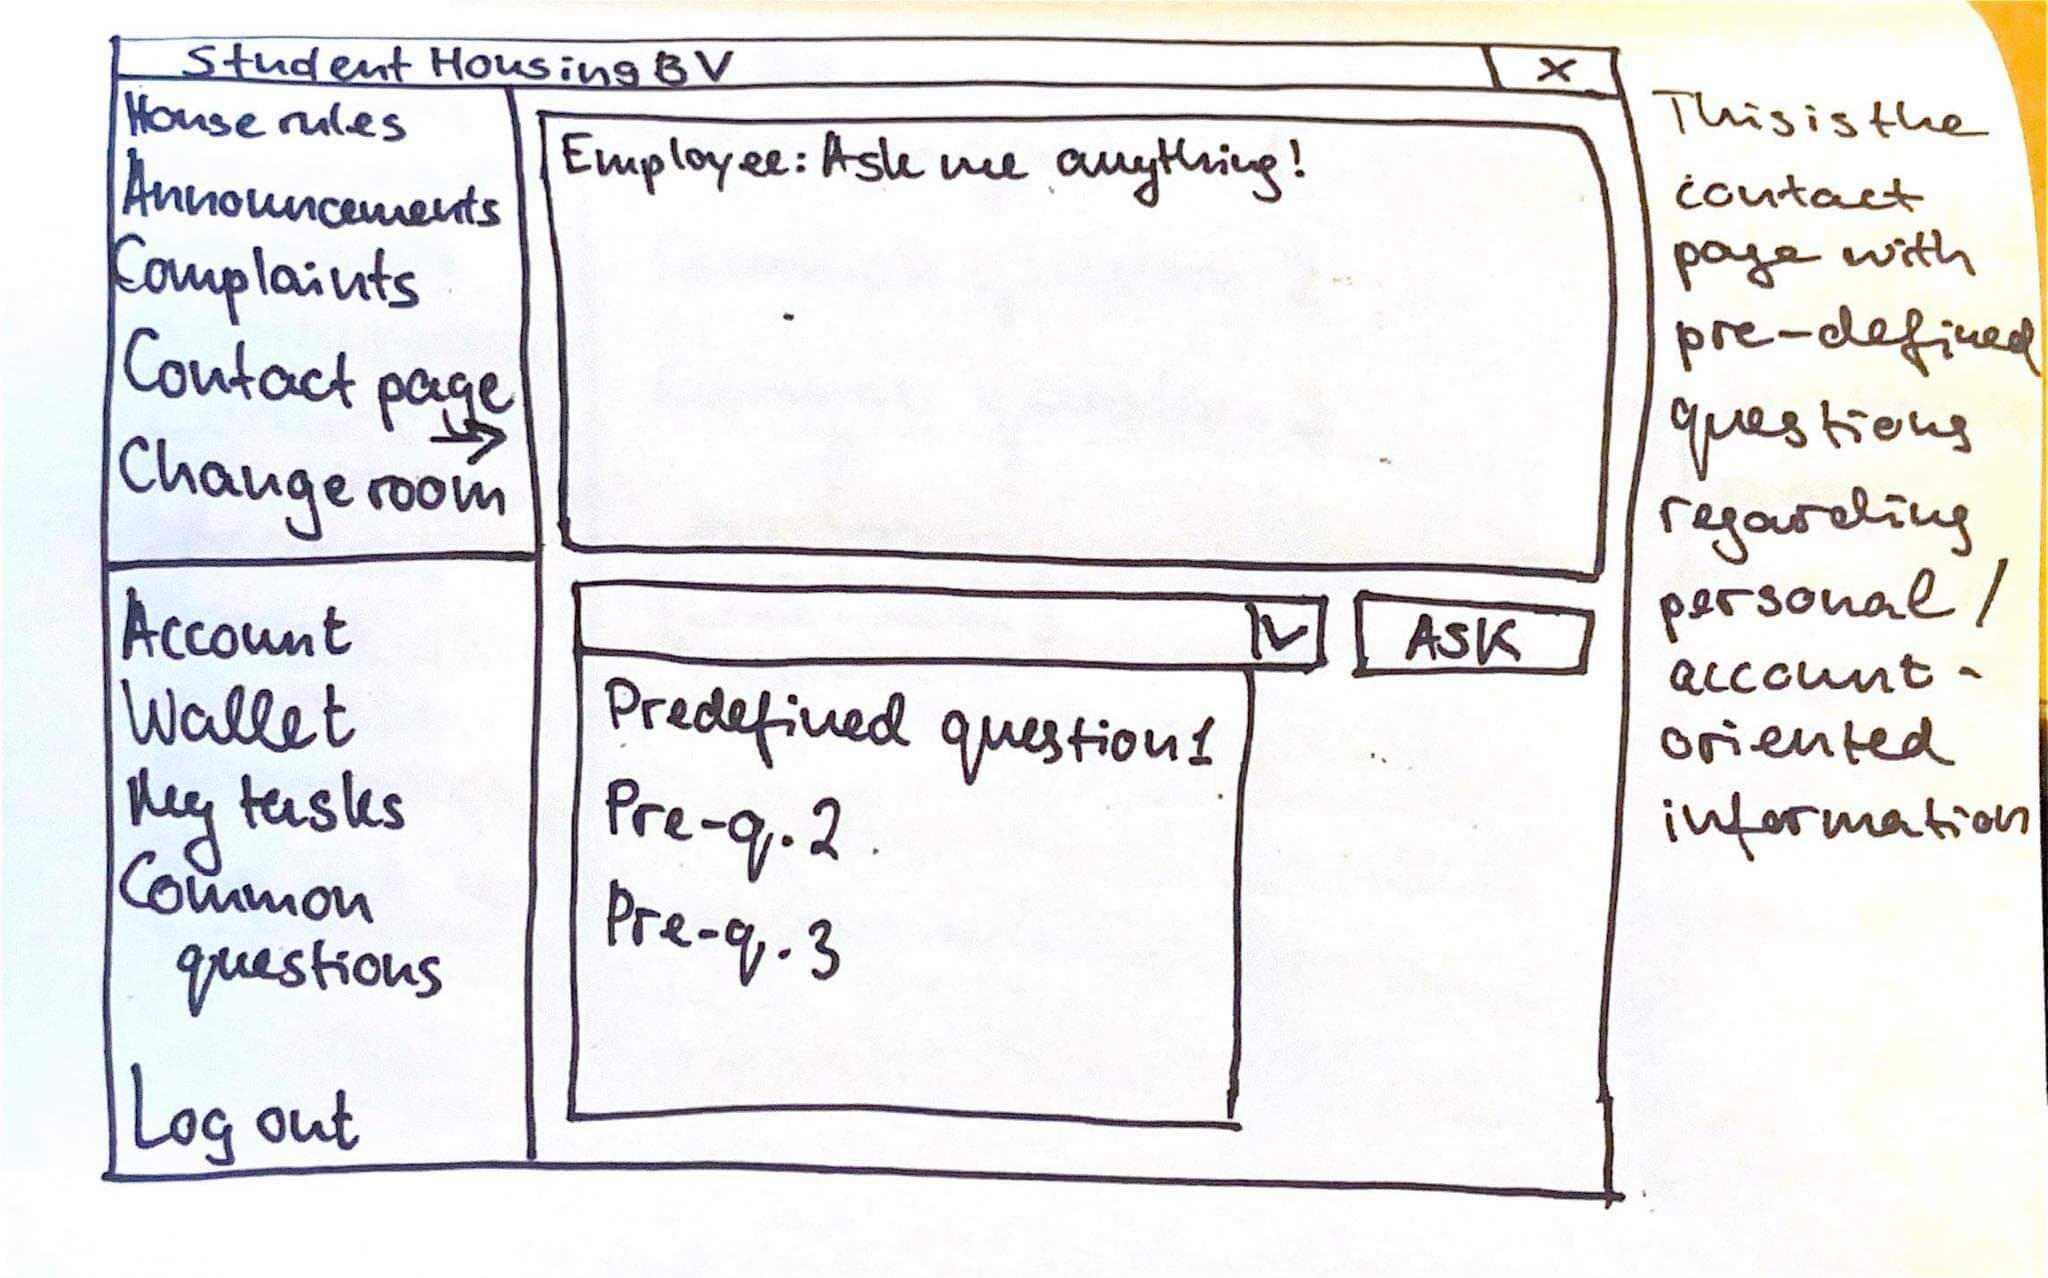 Student Housing BV
X
House rules
Announcements
Complaints
Contact page
Change room
Account
Wallet
My tasks
Common
questions
Log out
Employee: Ask me anything!
ASK
Predefined question 1
Pre-q. 2
Pre-q. 3
This is the
contact
page with
pre-defined
questions
regarding
personal /
account-
oriented
information